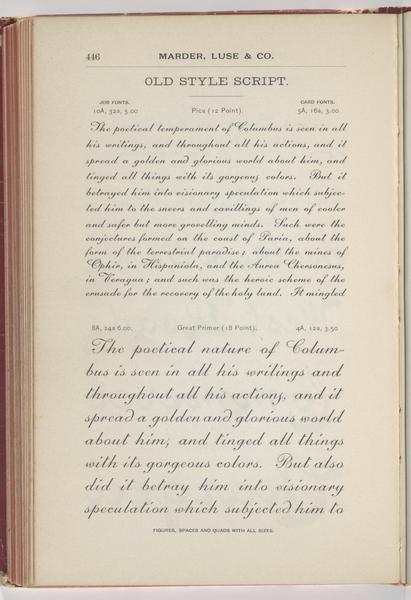 446 MARDER, LUSE & CO.
OLD STYLE SCRIPT.
JOB FONTS. CARD FONTS.
10A, 32a, 5.00 Pica (12 Point). 5A, 16a, 3.00
The poetical temperament of Columbus is seen in all
his writings, and throughout all his actions, and it
spread a golden and glorious world about him, and
tinged all things with its gorgeous colors. But it
betrayed him into visionary speculation which subjec-
ted him to the sneers and cavillings of men of cooler
and safer but more grovelling minds. Such were the
conjectures formed on the coast of Paria, about the
form of the terrestrial paradise; about the mines of
Ophir, in Hispaniola, and the Aurea Chersonesus,
in Veragua; and such was the heroic scheme of the
crusade for the recovery of the holy land. It mingled
8A, 24a 6.00, Great Primer (18 Point). 4A, 12a, 3.50
The poetical nature of Colum-
bus is seen in all his writings and
throughout all his actions, and it
spread a golden and glorious world
about him, and tinged all things
with its gorgeous colors. But also
did it betray him into visionary
speculation which subjected him to
FIGURES, SPACES AND QUADS WITH ALL SIZES.